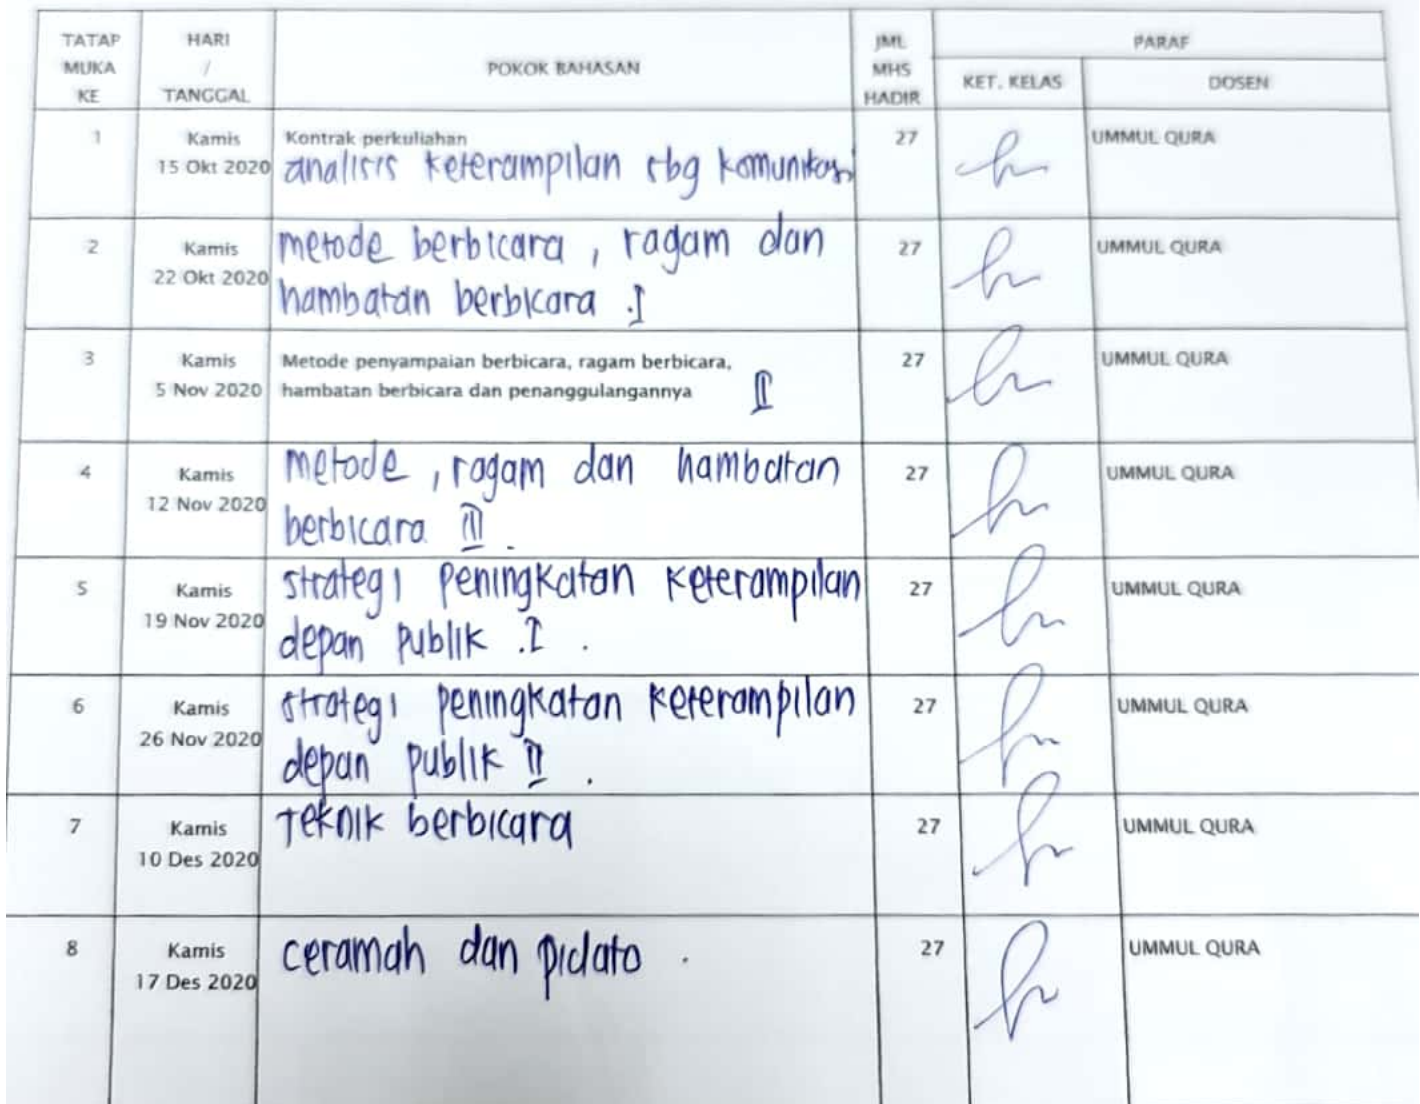 TATAP MUKA KE
HARI / TANGGAL
POKOK BAHASAN
JML MHS HADIR
PARAF
KET. KELAS
DOSEN
1
Kamis
15 Okt 2020
Kontrak perkuliahan
analisis keterampilan sbg komunikasi
27
UMMUL QURA
2
Kamis
22 Okt 2020
metode berbicara, ragam dan
hambatan berbicara .I
27
UMMUL QURA
3
Kamis
5 Nov 2020
Metode penyampaian berbicara, ragam berbicara,
hambatan berbicara dan penanggulangannya II
27
UMMUL QURA
4
Kamis
12 Nov 2020
metode, ragam dan hambatan
berbicara III.
27
UMMUL QURA
5
Kamis
19 Nov 2020
strategi peningkatan keterampilan
depan publik .I .
27
UMMUL QURA
6
Kamis
26 Nov 2020
strategi peningkatan keterampilan
depan publik II .
27
UMMUL QURA
7
Kamis
10 Des 2020
Teknik berbicara
27
UMMUL QURA
8
Kamis
17 Des 2020
ceramah dan pidato .
27
UMMUL QURA